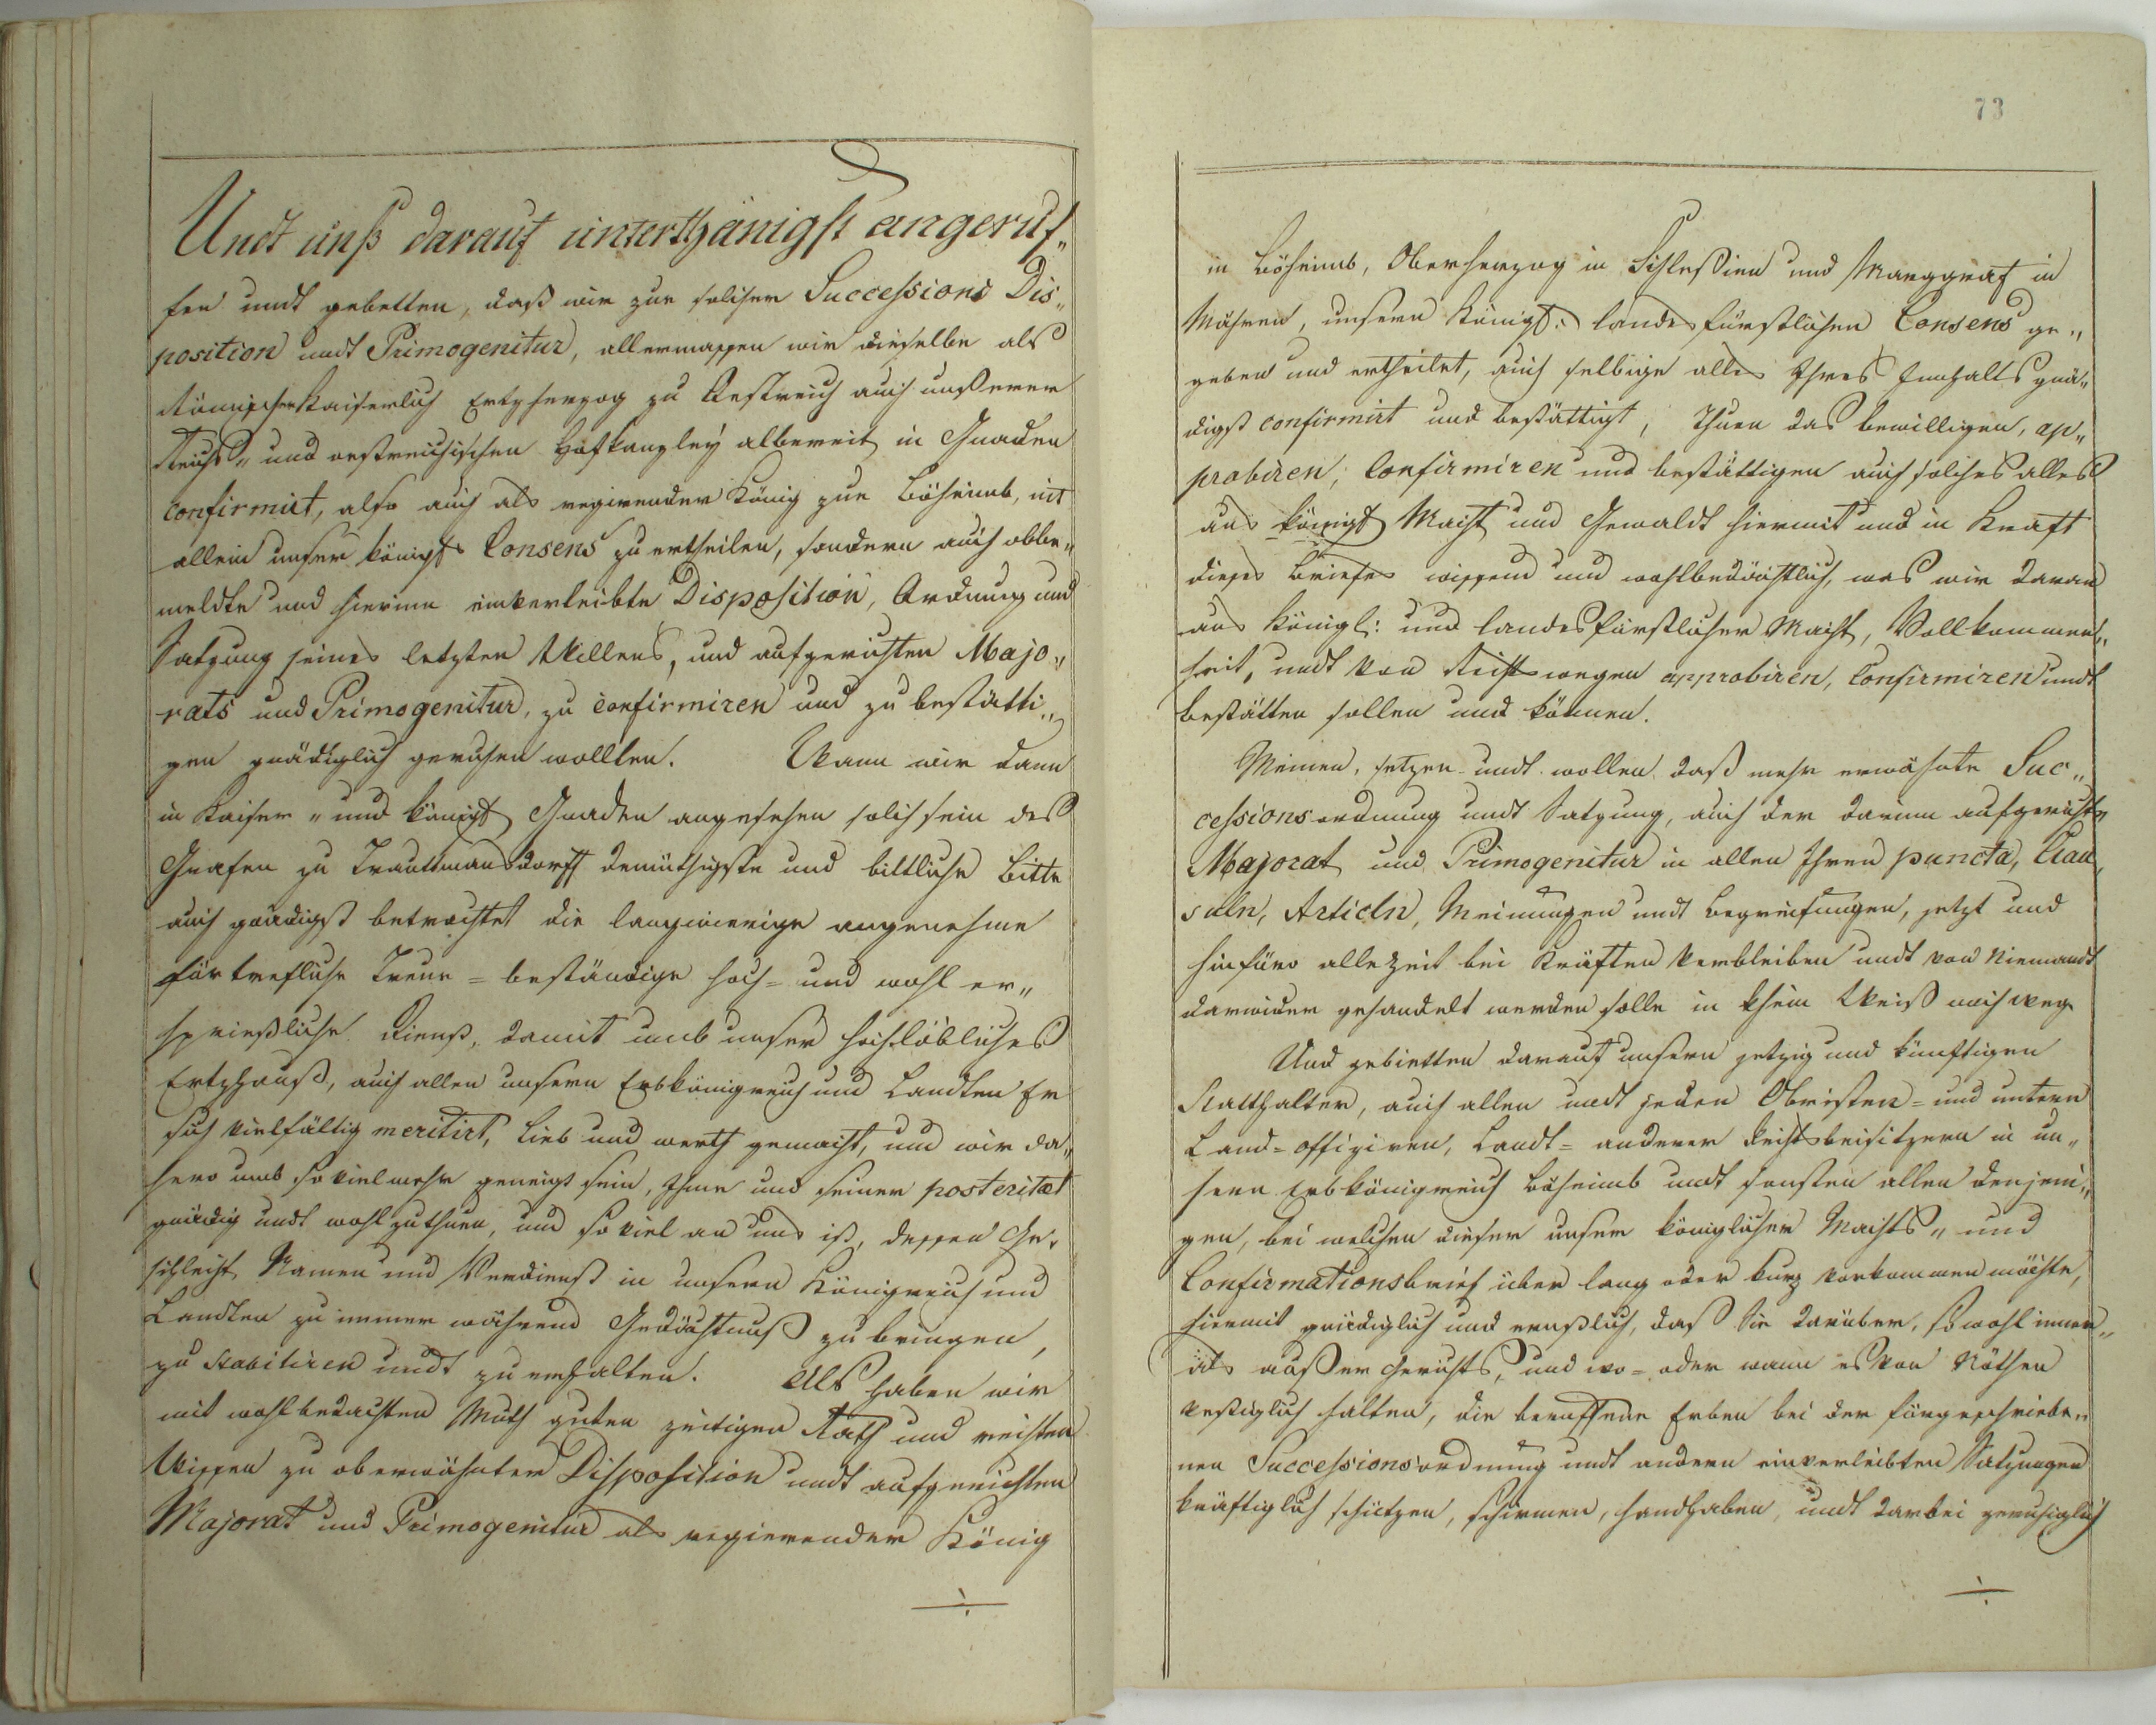 Undt unß darauf unterthänigst angeruf„
fen undt gebetten, daß wir zur solcher Successions Dis„
position undt Primogenitur, allermassen wir dieselbe als
Römischer Kaiserlich Ertzherzog zu Oestreich auch unßerer
Reichs„ und oestreichischen Hofkanzley albereit in Gnaden
confirmirt, also auch als regirender König zue Böheimb, nit
allein unser königl Consens zu ertheilen, sondern auch obbe„
meldte und hierinn einverleibte Disposition, Ordnung und
Satzung seines letzten Willens, und aufgerichten Majo„
rats und Primogenitur, zu confirmiren und zu bestätti„
gen gnädiglich geruhen wollten. Wann wir dann
in Kaiser„ und königl Gnaden angesehen solch sein des
Grafen zu Trauttmansdorff demüthigste und bittliche Bitte
auch gnädigst betrachtet die langwierige angenehme
fürtrefliche Treue= beständige hoch= und wohl er„
sprießliche Dienst, damit umb unser hochlöbliches
Ertzhauß, auch allen unsern Erbkönigreich und Landten Er
sich vielfältig meritirt, lieb und werth gemacht, und wir da„
hero umb so viel mehr geneigt sein, Ihme und seiner posteritæt
gnädig undt wohl zuthuen, und so viel an uns ist, dessen Ge„
schlecht Namen und Verdienst in unsern Königreich und
Landten zu immer während Gedächtnuß zu bringen,
zu stabiliren undt zu erhalten. Als haben wir
mit wohlbedachten Muth guten zeitigen Rath und rechten
Wissen zu oberwähnter Disposition undt aufgerichten
Majorat und Primogenitur als regierender König
73
in Böheimb, Oberherzog in Schleßien und Marggraf in
Mähren, unsern Königl: landesfürstlichen Consens ge„
geben und ertheilet, auch selbige alles Ihres Innhalts gnä„
digst confirmirt und bestättigt, Thuen das bewilligen, ap„
probiren, Confirmiren und bestättigen auch solches alles
aus königl Macht und Gewaldt hiermit und in Kraft
dieses Briefes wissend und wohlbedächtlich, was wir daran
aus Königl: und landesfürstlicher Macht, Vollkommen„
heit, undt von Rechtswegen approbiren, Confirmiren undt
bestätten sollen und können.
Meinen, setzen undt wollen daß mehr erwähnte Suc„
cessionsordnung undt Satzung, auch der darinn aufgericht
Majorat und Primogenitur in allen Ihren puncta, Clau„
suln, Articln, Meinungen undt Begreifungen, jetzt und
hinfüro alle Zeit bei Kräften verbleiben undt von Niemandt
darwider gehandelt werden solle in khein Weiß noch Weg
Und gebietten darauf unsern jetzig und künftigen
Statthalter, auch allen undt jeden Obristen= und untern
Land=offiziren, Landt= anderer Rechtsbeisitzern in un„
sern Erbkönigreich Böheimb undt sonsten allen denjeni„
gen, bei welchen dieser unser königlicher Machts„ und
Confirmationsbrief über lang oder kurz vorkommen möchte,
hiermit gnädiglich und ernstlich, daß Sie darüber, sowohl inner„
als außer Gerichts, und wo= oder wann es von Nöthen
vestiglich halten, die beruffene Erben bei der fürgeschriebe„
nen Successionsordnung undt andern einverleibten Satzungen
kräftiglich schützen, schirmen, handhaben, undt darbei geruhiglich